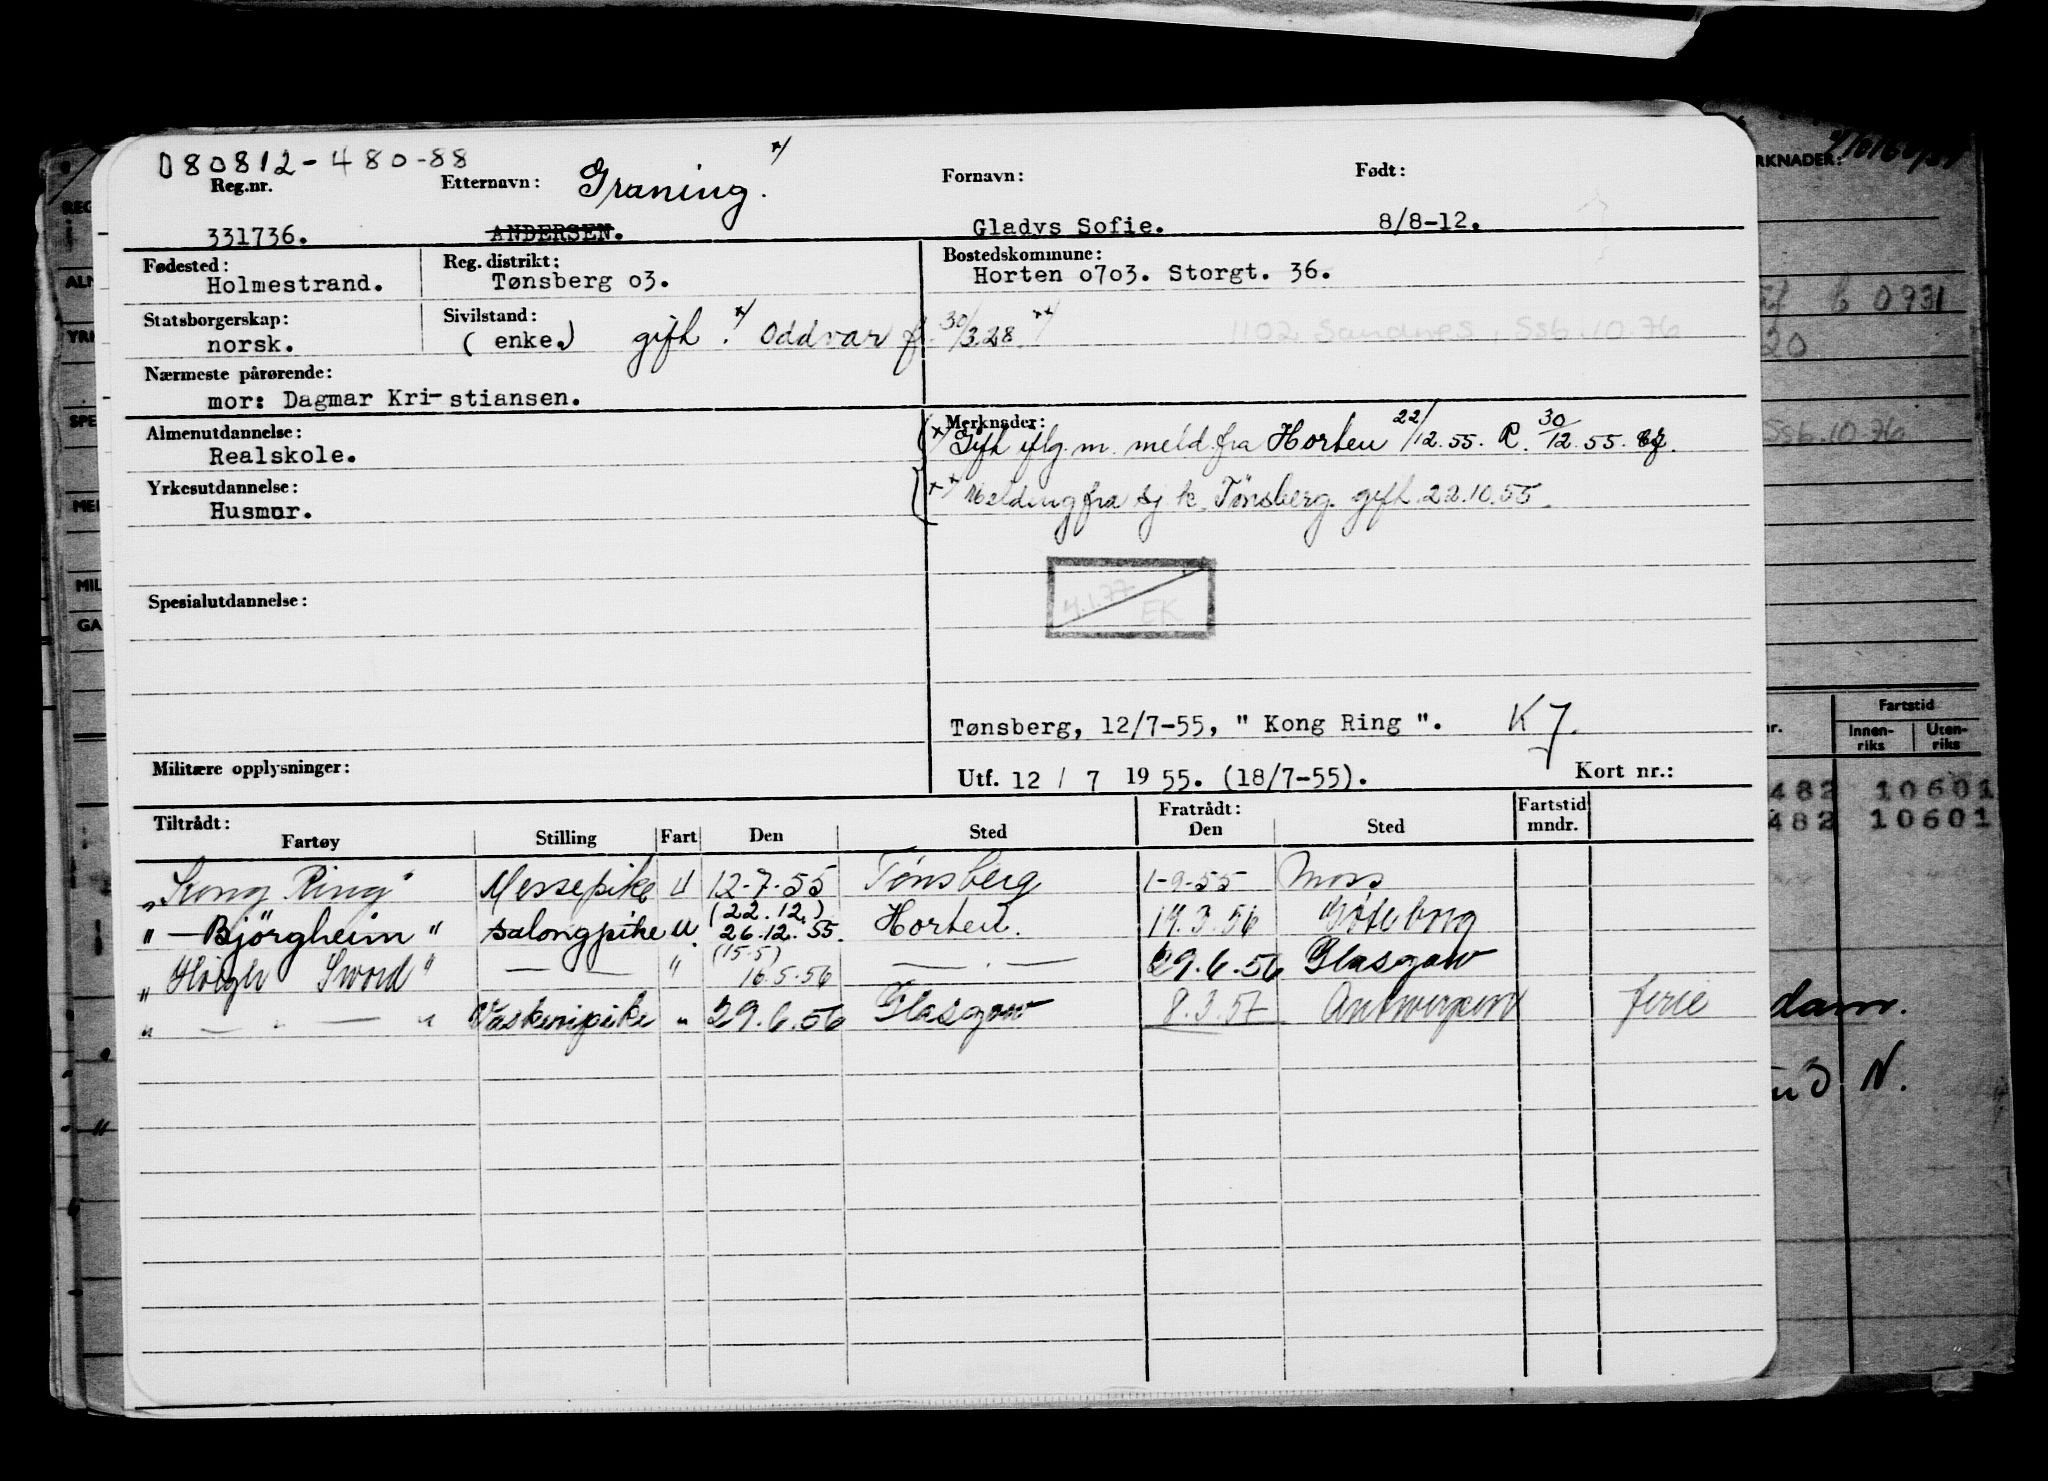 080812-480-88
Reg.nr. Etternavn: Graning. x/ Fornavn: Født:
331736. ANDERSEN. Gladys Sofie. 8/8-12.
Fødested: Reg. distrikt: Bostedskommune:
Holmestrand. Tønsberg 03. Horten 0703. Storgt. 36.
Statsborgerskap: Sivilstand:
norsk. (enke.) gift. x/ Oddvar f. 30/3.28. xx/ 1102 Sandnes, Ssb.10.76
Nærmeste pårørende:
mor: Dagmar Kri-stiansen.
Almenutdannelse: Merknader:
Realskole. x/ Gift iflg. m. meld. fra Horten 22/12.55. R. 30/12.55.
Yrkesutdannelse:
Husmor. xx/ Melding fra sj k. Tønsberg. gift. 22.10.55.
4.1.77
EK
Spesialutdannelse:
Tønsberg, 12/7-55, " Kong Ring ". K7.
Militære opplysninger: Utf. 12 / 7 1955. (18/7-55). Kort nr.:
Tiltrådt: Fratrådt: Fartstid
Fartøy Stilling Fart Den Sted Den Sted mndr.
"Kong Ring" Messepike U 12-7-55 Tønsberg 1-9-55 Moss
(22.12.)
"-Björgheim" salongpike U 26.12.55. Horten. 19.3.56 Gøteborg
(15.5)
"Høigh Sword" — — " 16.5.56 — . — 29.6.56 Glasgow
" — " — " Vaskeripike " 29.6.56 Glasgow 8.3.57 Antwerpen ferie
RKNADER:
0931
20
Ssb.10.76
Fartstid
Innen-riks Uten-riks
482 10601
482 10601
dam.
N.